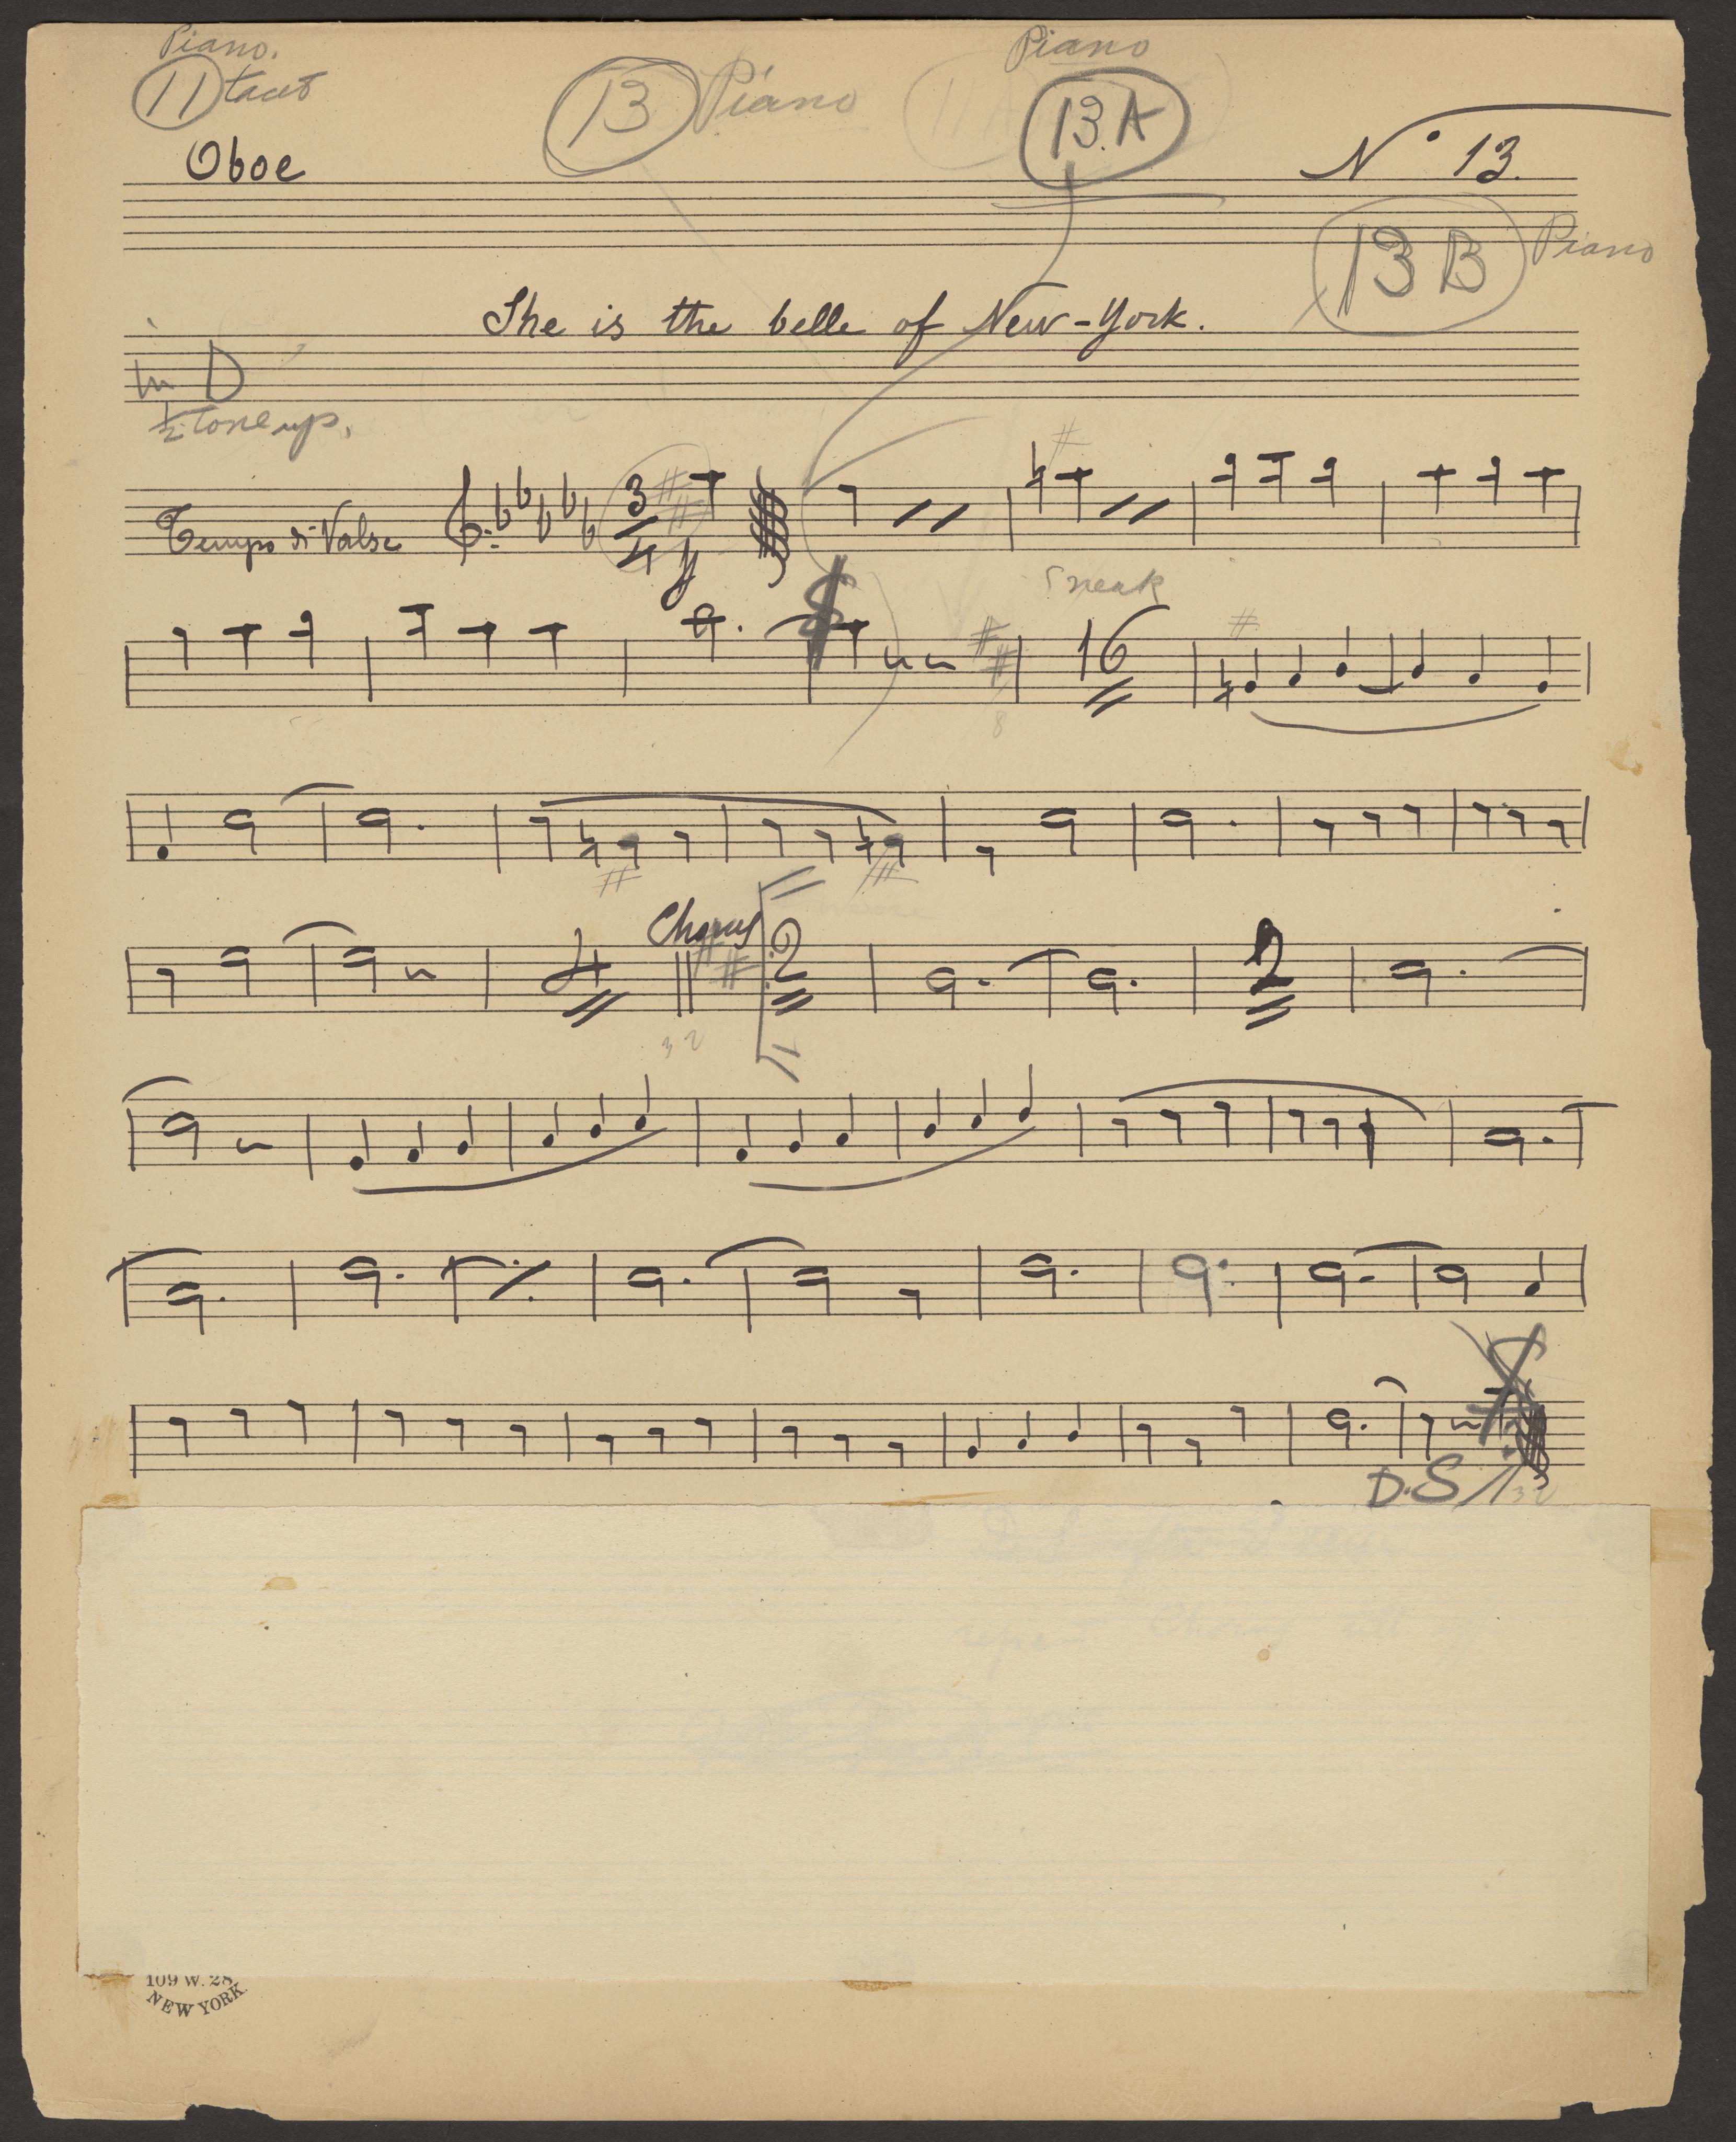 Piano.
11 tacet
13 Piano
Piano
13.A
Oboe
No 13.
13 B Piano
She is the belle of New-York.
in D
½ tone up.
Tempo di Valse
3
4
Sneak
16
8
4
Chorus
2
2
32
D.S.
32
109 W. 28
NEW YORK.